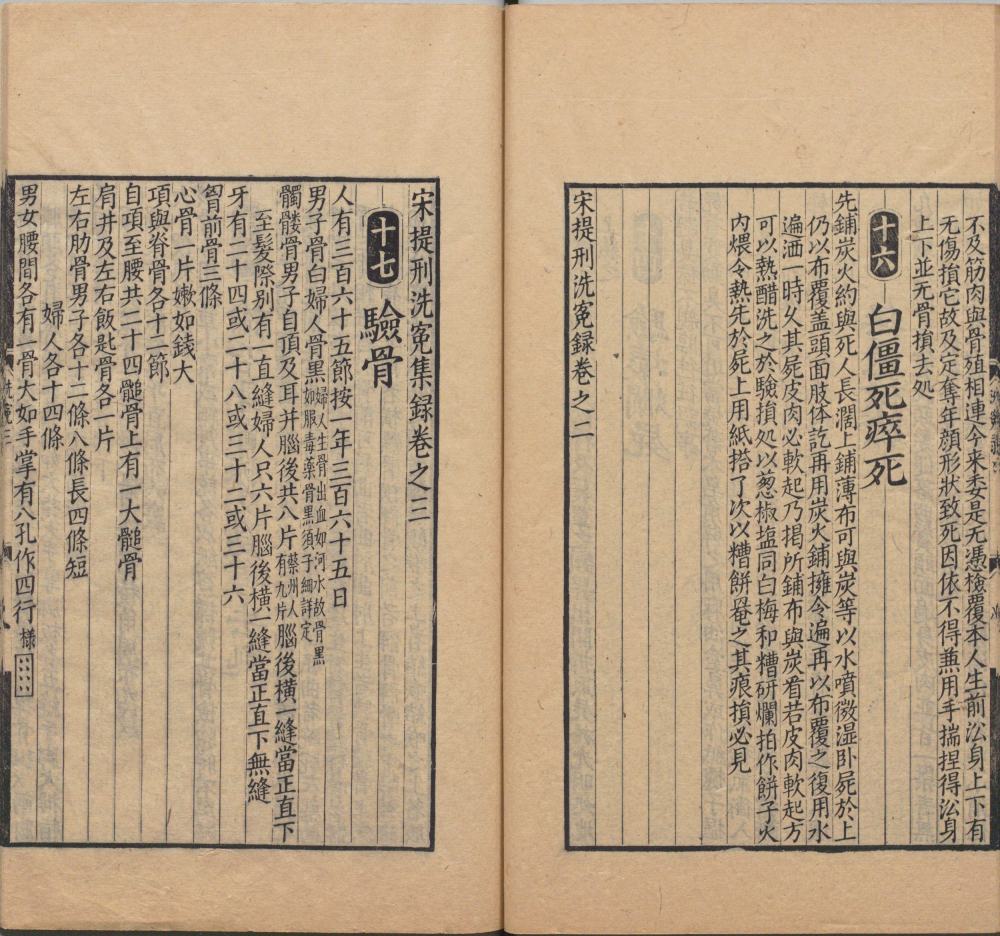 不及筋肉與骨殖相連今来委是无憑檢覆本人生前沿身上下有
无傷損它故及定奪年顔形狀致死因依不得兼用手揣捏得沿身
上下並无骨損去処
十六
白僵死瘁死
先鋪炭火約與死人長濶上鋪薄布可與炭等以水噴微湿卧屍於上
仍以布覆盖頭面肢体訖再用炭火鋪擁令遍再以布覆之復用水
遍洒一時久其屍皮肉必軟起乃掲所鋪布與炭看若皮肉軟起方
可以熱醋洗之於驗損処以葱椒塩同白梅和糟研爛拍作餅子火
内煨令熱先於屍上用紙搭了次以糟餅罨之其痕損必見
宋提刑洗寃録卷之二
宋提刑洗寃集録卷之三
十七
驗骨
人有三百六十五節按一年三百六十五日
男子骨白婦人骨黑婦人生骨出血如河水故骨黑如服毒藥骨黑須子細詳定
髑髏骨男子自頂及耳并腦後共八片蔡州人有九片腦後横一縫當正直下
至髮際别有一直縫婦人只六片腦後横一縫當正直下無縫
牙有二十四或二十八或三十二或三十六
胷前骨三條
心骨一片嫰如錢大
項與脊骨各十二節
自項至腰共二十四髓骨上有一大髓骨
肩井及左右飯匙骨各一片
左右肋骨男子各十二條八條長四條短
婦人各十四條
男女腰間各有一骨大如手掌有八孔作四行様